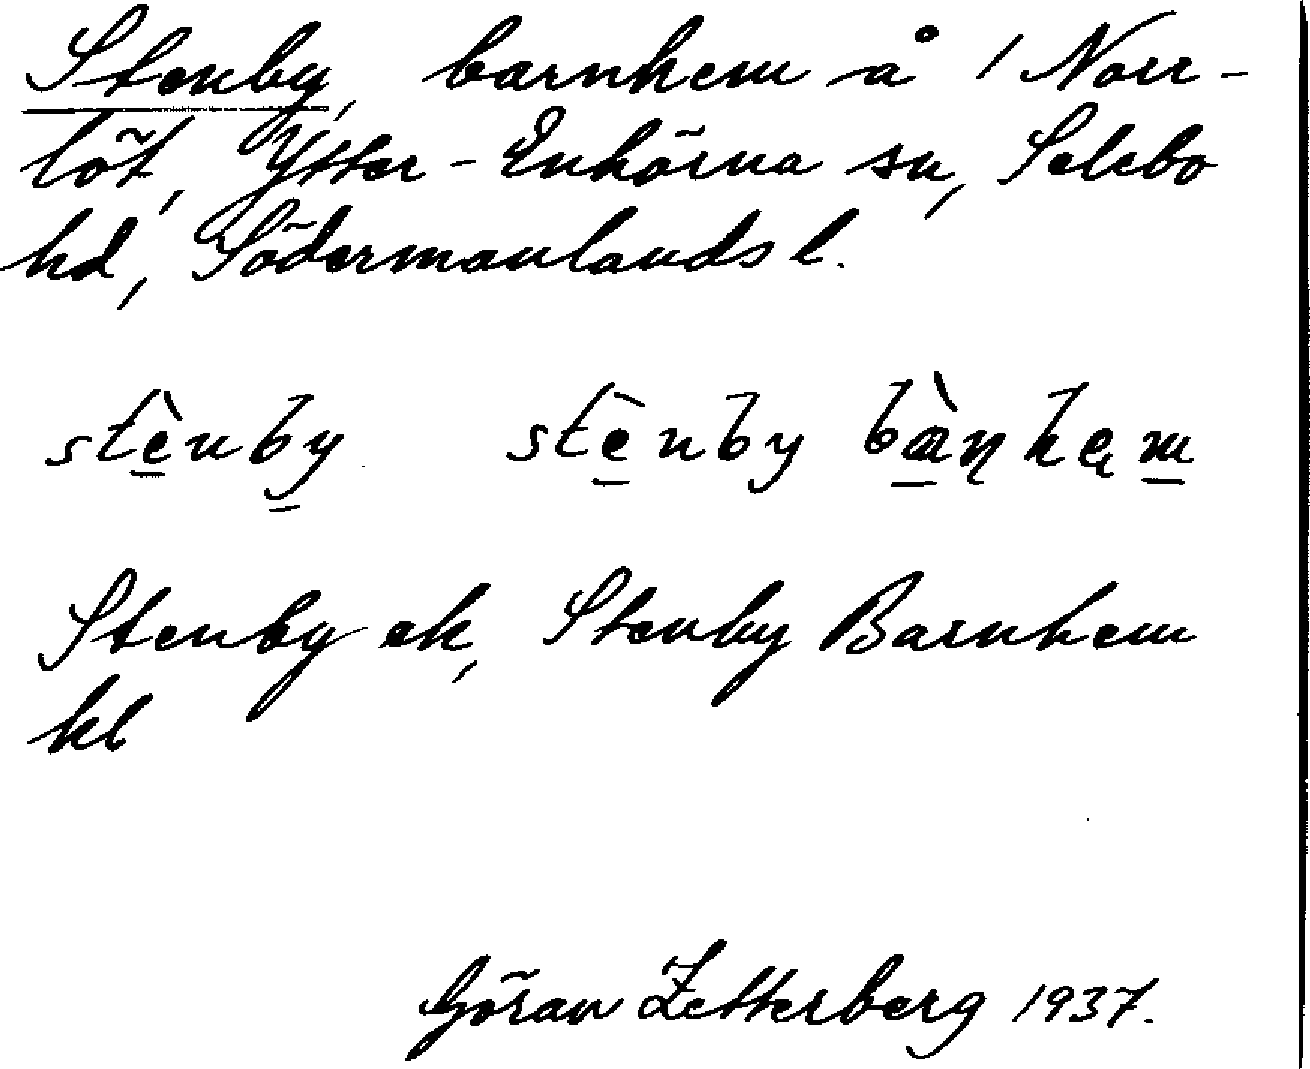 Stenby, barnhem å 1 Norr-
löt, Ytter-Enhörna sn, Selebo
hd, Södermanlands l.
stènby stēnby bànhem
Stenby ek, Stenby Barnhem
kl
Göran Zetterberg 1937.